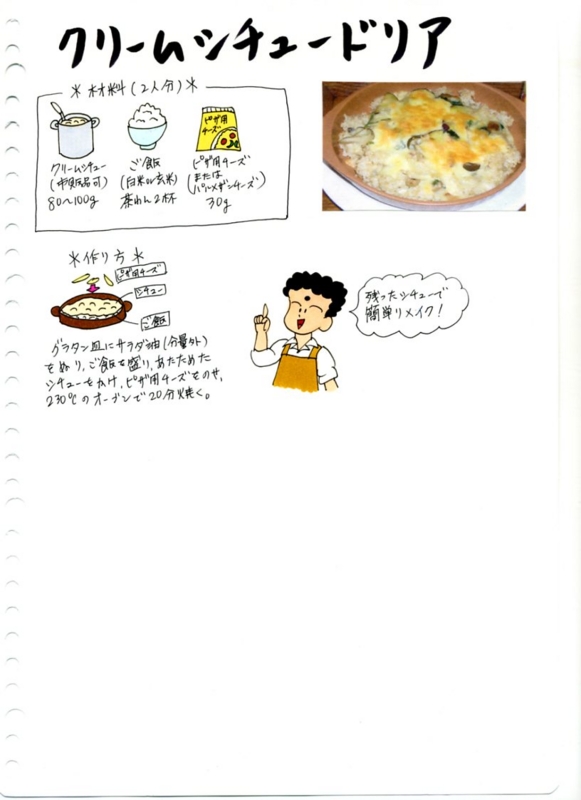 クリームシチュードリア
＊材料(2人分)＊
ピザ用
チーズ
クリームシチュー
(市販品可)
80〜100g
ご飯
(白米or玄米)
茶わん2杯
ピザ用チーズ
(または
パルメザンチーズ)
30g
＊作り方＊
ピザ用チーズ
シチュー
ご飯
グラタン皿にサラダ油(分量外)
をぬり、ご飯を盛り、あたためた
シチューをかけ、ピザ用チーズをのせ、
230℃のオーブンで20分焼く。
残ったシチューで
簡単リメイク!